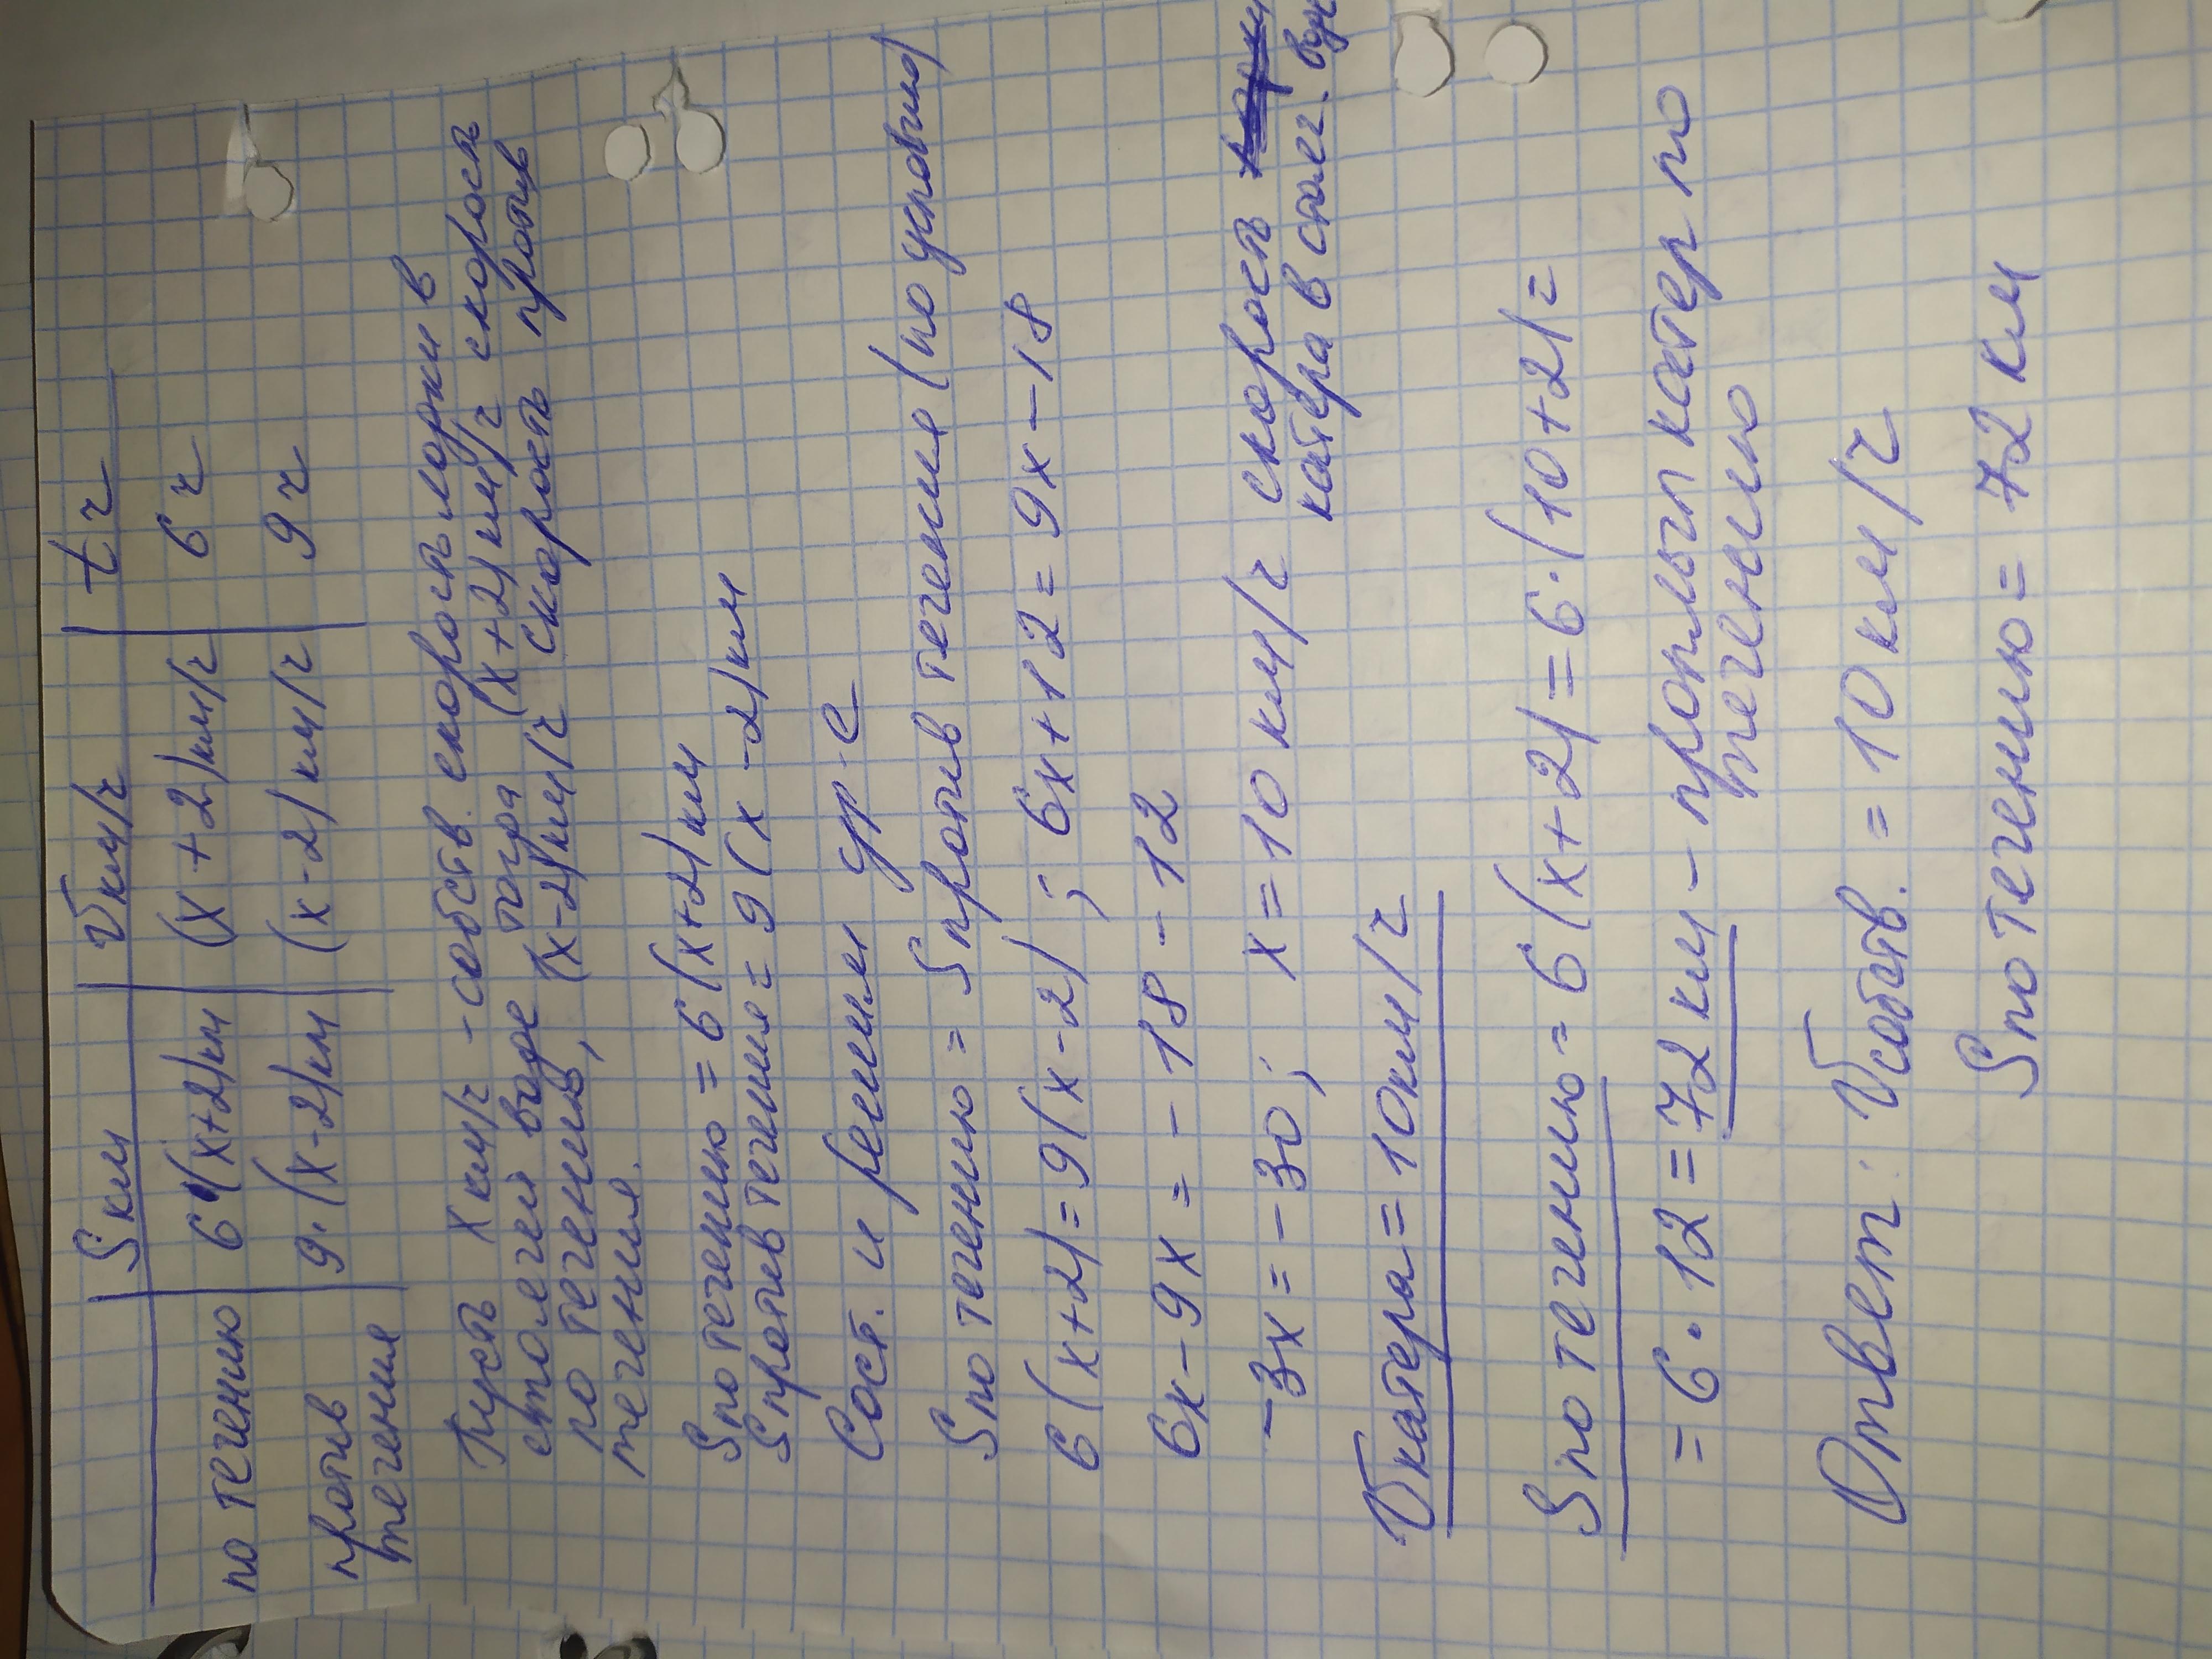 S км | V км/ч | t ч
по течению 6·(х+2) км | (х+2) км/ч | 6 ч
против 9·(х-2) км | (х-2) км/ч | 9 ч
течения
Пусть х км/ч - собств. скорость лодки в
стоячей воде тогда (х+2) км/ч скорость
по течению, (х-2) км/ч скорость против
течения.
S по течению = 6(х+2) км
S против течения = 9(х-2) км
Сост. и решим ур-е
S по течению = S против течения (по условию)
6(х+2)=9(х-2); 6х+12=9х-18
6х-9х=-18-12
-3х=-30; х=10 км/ч скорость
катера в стояч.
V катера=10 км/ч
S по течению = 6(х+2)=6·(10+2)=
=6·12=72 км - проплыл катер по
течению
Ответ: V собств. = 10 км/ч
S по течению = 72 км